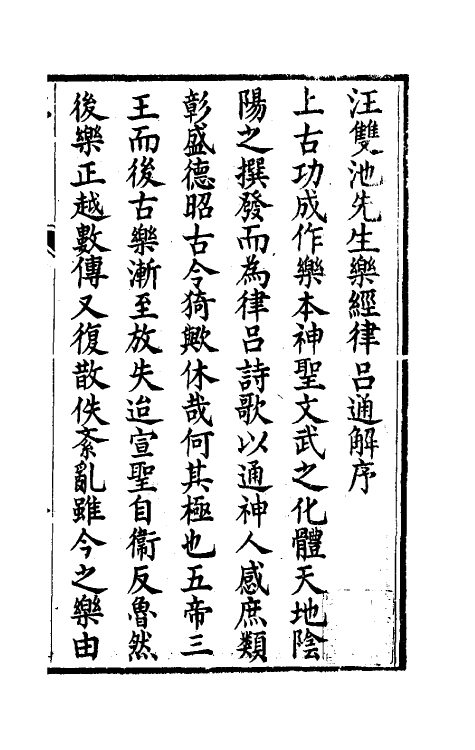 汪雙池先生樂經律呂通解序
上古功成作樂本神聖文武之化體天地陰
陽之撰發而為律呂詩歌以通神人感庶類
彰盛德昭古今猗歟休哉何其極也五帝三
王而後古樂漸至放失迨宣聖自衞反魯然
後樂正越數傳又復散佚紊亂雖今之樂由